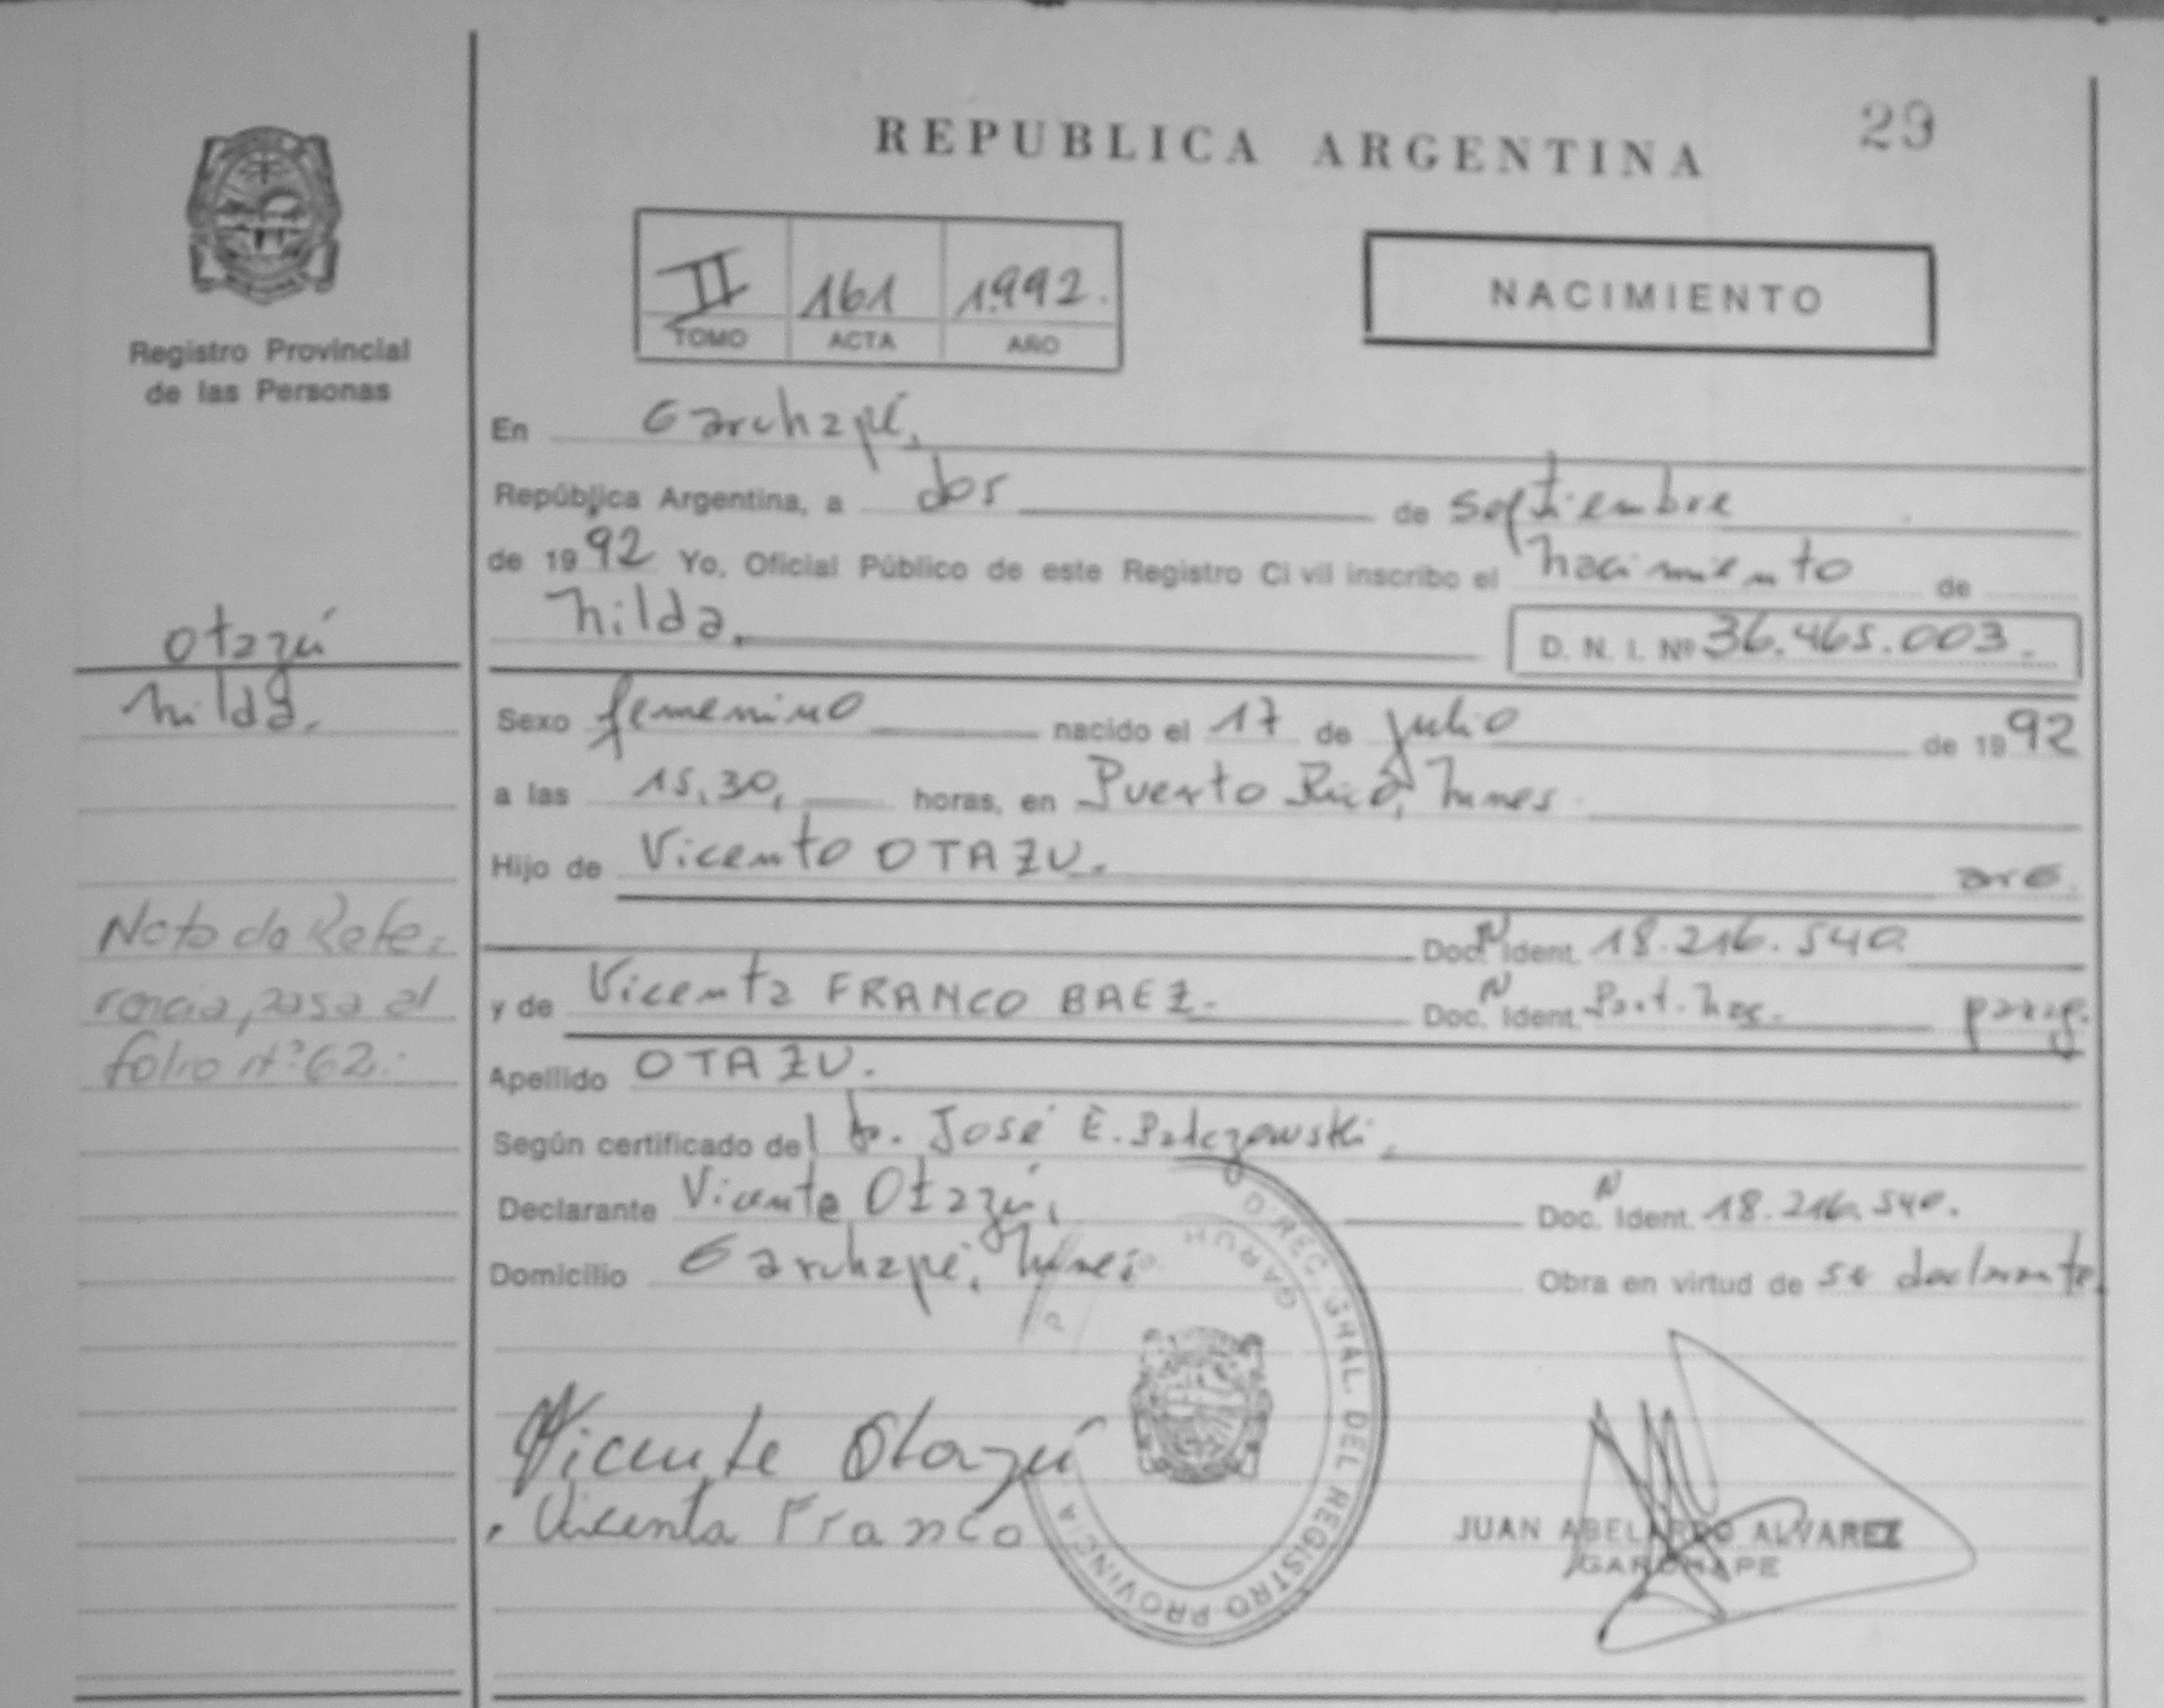 REPUBLICA ARGENTINA
29
II 161 1992.
TOMO ACTA AÑO
NACIMIENTO
Registro Provincial
de las Personas
En Garuhapé,
República Argentina, a dos de septiembre
de 1992 Yo, Oficial Público de este Registro Civil inscribo el nacimiento de
Nilda. D. N. I. Nº 36.465.003.
Otazú
Nilda.
Sexo femenino nacido el 17 de julio de 1992
a las 15,30, horas, en Puerto Rico,
Hijo de Vicente OTAZU. arg.
Doc. N Ident. 18.216.540
y de Vicenta FRANCO BAEZ. Doc. N Ident. Part. Nac. parag.
Nota de Refe-
rencia, pasa al
folio nº 62.
Apellido OTAZU.
Según certificado del Dr. José E.
Declarante Vicente Otazú, Doc. N Ident. 18.216.540.
Domicilio Garuhapé, Obra en virtud de se declarante
Vicente Otazú
Vicenta Franco
DIREC. GRAL. DEL REGISTRO PROVINCIA
GARUH
JUAN ABELARDO ALVAREZ
GARUHAPE